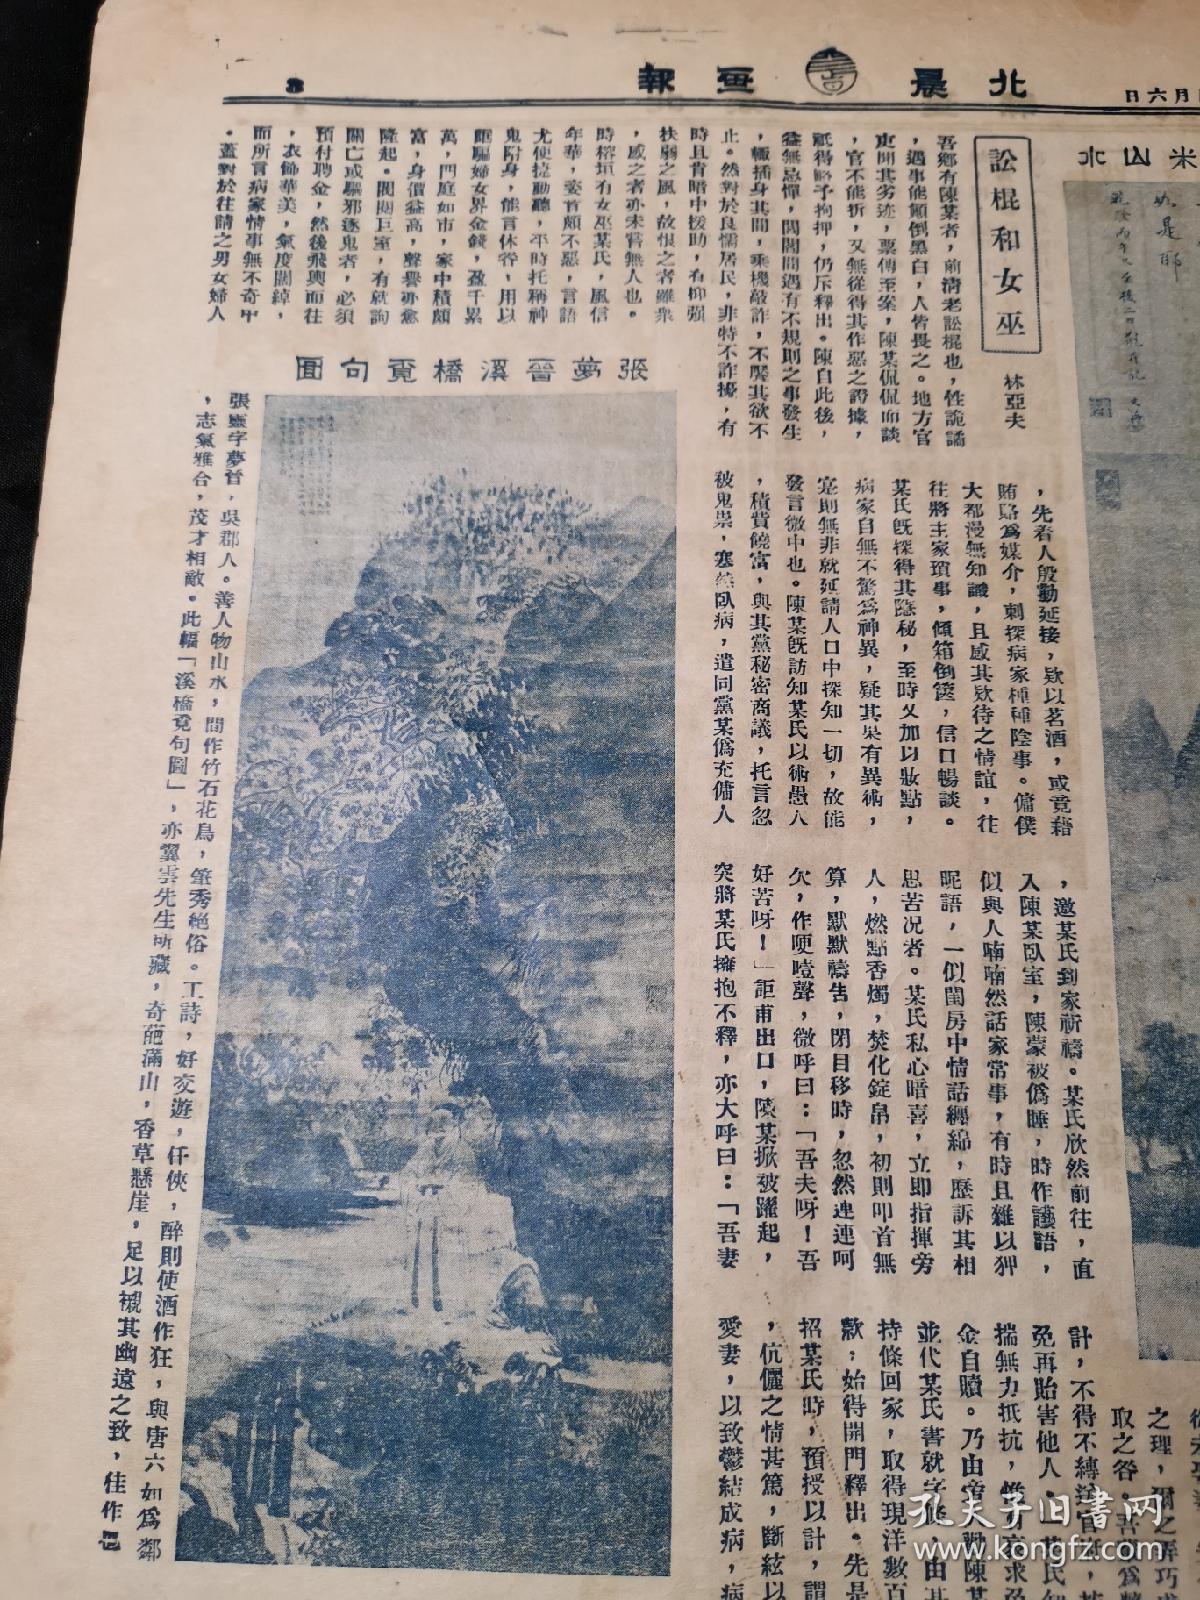 北晨畫報
日六月
8
米山水
訟棍和女巫
林亞夫
吾鄉有陳某者，前清老訟棍也，性詭譎
，遇事能顛倒黑白，人皆畏之。地方官
吏聞其劣迹，票傳至案，陳某侃侃而談
，官不能折，又無從得其作惡之證據，
祇得略予拘押，仍斥釋出。陳自此後，
益無忌憚，閭閻間遇有不規則之事發生
，輒插身其間，乘機敲詐，不饜其欲不
止。然對於良懦居民，非特不詐擾，有
時且肯暗中援助，有抑强
扶弱之風，故恨之者雖衆
，感之者亦未嘗無人也。
時榕垣有女巫某氏，風信
年華，姿首頗不惡，言語
尤便捷動聽，平時托稱神
鬼附身，能言休咎，用以
誆騙婦女界金錢，盈千累
萬，門庭如市，家中積頗
富，身價益高，聲譽亦愈
隆起。閥閱巨室，有就詢
關亡或驅邪逐鬼者，必須
預付聘金，然後飛輿而往
，衣飾華美，氣度闊綽，
而所言病家情事無不奇中
。蓋對於往請之男女婦人
，先着人殷勤延接，欵以茗酒，或竟藉
賄賂爲媒介，刺探病家種種陰事。傭僕
大都漫無知識，且感其欵待之情誼，往
往將主家瑣事，傾箱倒篋，信口暢談。
某氏旣探得其隱秘，至時又加以妝點，
病家自無不驚爲神異，疑其果有異術，
寔則無非就延請人口中探知一切，故能
發言微中也。陳某旣訪知某氏以術愚人
，積貲饒富，與其黨秘密商議，托言忽
被鬼祟，寒熱臥病，遣同黨某僞充傭人
，邀某氏到家祈禱。某氏欣然前往，直
入陳某臥室，陳蒙被僞睡，時作譫語，
似與人喃喃然話家常事，有時且雜以狎
昵語，一似閨房中情話纏綿，歷訴其相
思苦况者。某氏私心暗喜，立即指揮旁
人，燃點香燭，焚化錠帛，初則叩首無
算，默默禱告，閉目移時，忽然連連呵
欠，作哽噎聲，微呼曰：「吾夫呀！吾
好苦呀！」詎甫出口，陳某掀被躍起，
突將某氏擁抱不釋，亦大呼曰：「吾妻
之理，爾之弄巧
取之咎。吾爲
計，不得不縛送官
免再貽害他人。」某氏
揣無力抵抗，惟有哀求
金自贖。乃由旁人勸陳某
並代某氏書就字條，由其
持條回家，取得現洋數百
欵；始得開門釋出。先是
招某氏時，預授以計，謂
，伉儷之情甚篤，斷絃以
愛妻，以致鬱結成病，病
張夢晉溪橋覓句圖
張靈字夢晉，吳郡人。善人物山水，間作竹石花鳥，筆秀絕俗。工詩，好交遊，任俠，醉則使酒作狂，與唐六如爲鄰
，志氣雅合，茂才相敵。此幅「溪橋覓句圖」，亦翼雲先生所藏，奇葩滿山，香草懸崖，足以襯其幽遠之致，佳作也
孔夫子旧書网
www.kongfz.com